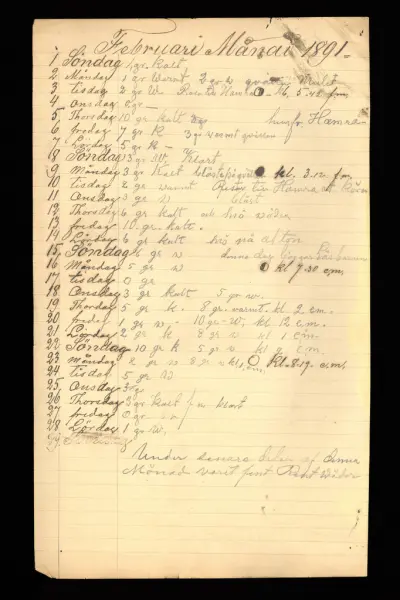 Februari Månad 1891.
1 Söndag 1 gr. kallt
2 Måndag 1 gr varmt 2 gr w
3 Tisdag 2 gr W. Reste Hamra M. 5.42 f.m.
4 Onsdag 2 gr
5 Thorsdag 10 gr kallt hemfr. Hamra
6 fredag 7 gr K 3 gr varmt qvällen
7 Lördag 5 gr K –
8 Söndag 3 gr W. Klart.
9 Måndag 3 gr Kl. 3.12 f.m.
10 Tisdag 2 gr varmt Reste till Hamra
11 Onsdag 3 gr w blåst
12 Thorsdag 6 gr kallt och snö väder
13 fredag 10 gr. kallt.
14 Lördag 6 gr kallt snö på afton
15, Söndag 2 gr w
16 Måndag 5 gr w kl 7.30 e,m.
17 Tisdag 0 gr
18 Onsdag 3 gr kallt 5 gr w.
19 Thorsdag 5 gr k. 8 gr. varmt. kl 2 e.m.
20 fredag 1 gr w. 10 gr – W, kl 12 e.m.
21 Lördag 2 gr k 8 gr w kl 1 e.m.
22 Söndag 10 gr k 5 gr w. kl e.m.
23 Måndag 2 gr w 8 gr w kl. 8.19. e.m.
24 Tisdag 5 gr W
25, Onsdag 3 gr
26 Thorsdag 3 gr kallt f m klart
27 fredag 0 gr
28 Lördag 1 gr W.
29 Söndag
Under senare delen af denna
Månad varit fint väder